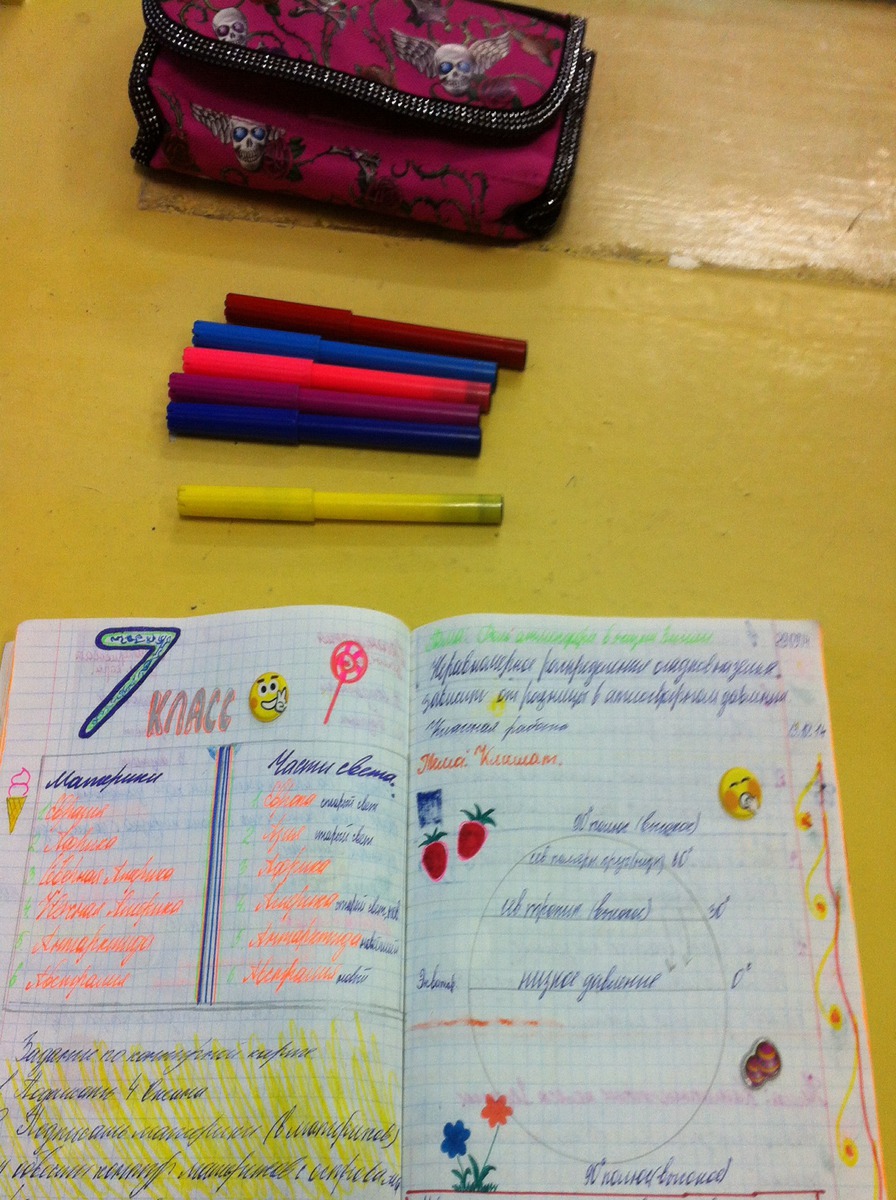 7 КЛАСС
Материки
1. Евразия
2. Африка
3. Северная Америка
4. Южная Америка
5. Антарктида
6. Австралия
Части света.
1. Европа старый свет
2. Азия старый свет
3. Африка
4. Америка новый
5. Антарктида новейший
6. Австралия новый
Задание по контурной карте
1 Подписать 4 океана
Подписать материки (6 материков)
контур материков с островами
Тема: Роль атмосферы в жизни Земли
Неравномерное распределение осадков на земле
зависит от разницы в атмосферном давлении
Классная работа 13.10.14
Тема: Климат.
90° полюс (высокое)
сев поляр круг (низк) 60°
сев тропик (высокое) 30°
Экватор низкое давление 0°
90° полюс (высокое)